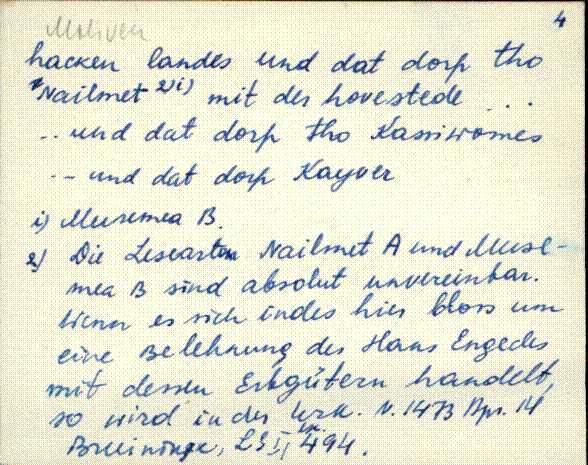 4
hacken landes und dat dorp tho
Nailmet 2) 1) mit der hovestede ...
.. und dat dorp tho Kassiwomes
-- und dat dorp Kayver
1) Musemea B.
2) Die Lesearten Nailmet A und Muse-
mea B sind absolut unvereinbar.
Wenn es sich indes hier bloss um
eine Belehnung des Hans Engedes
mit dessen Erbgütern handelt,
so wird in der Urk. v. 1473 Apr. 14
Bruiningk, LG II, 494.